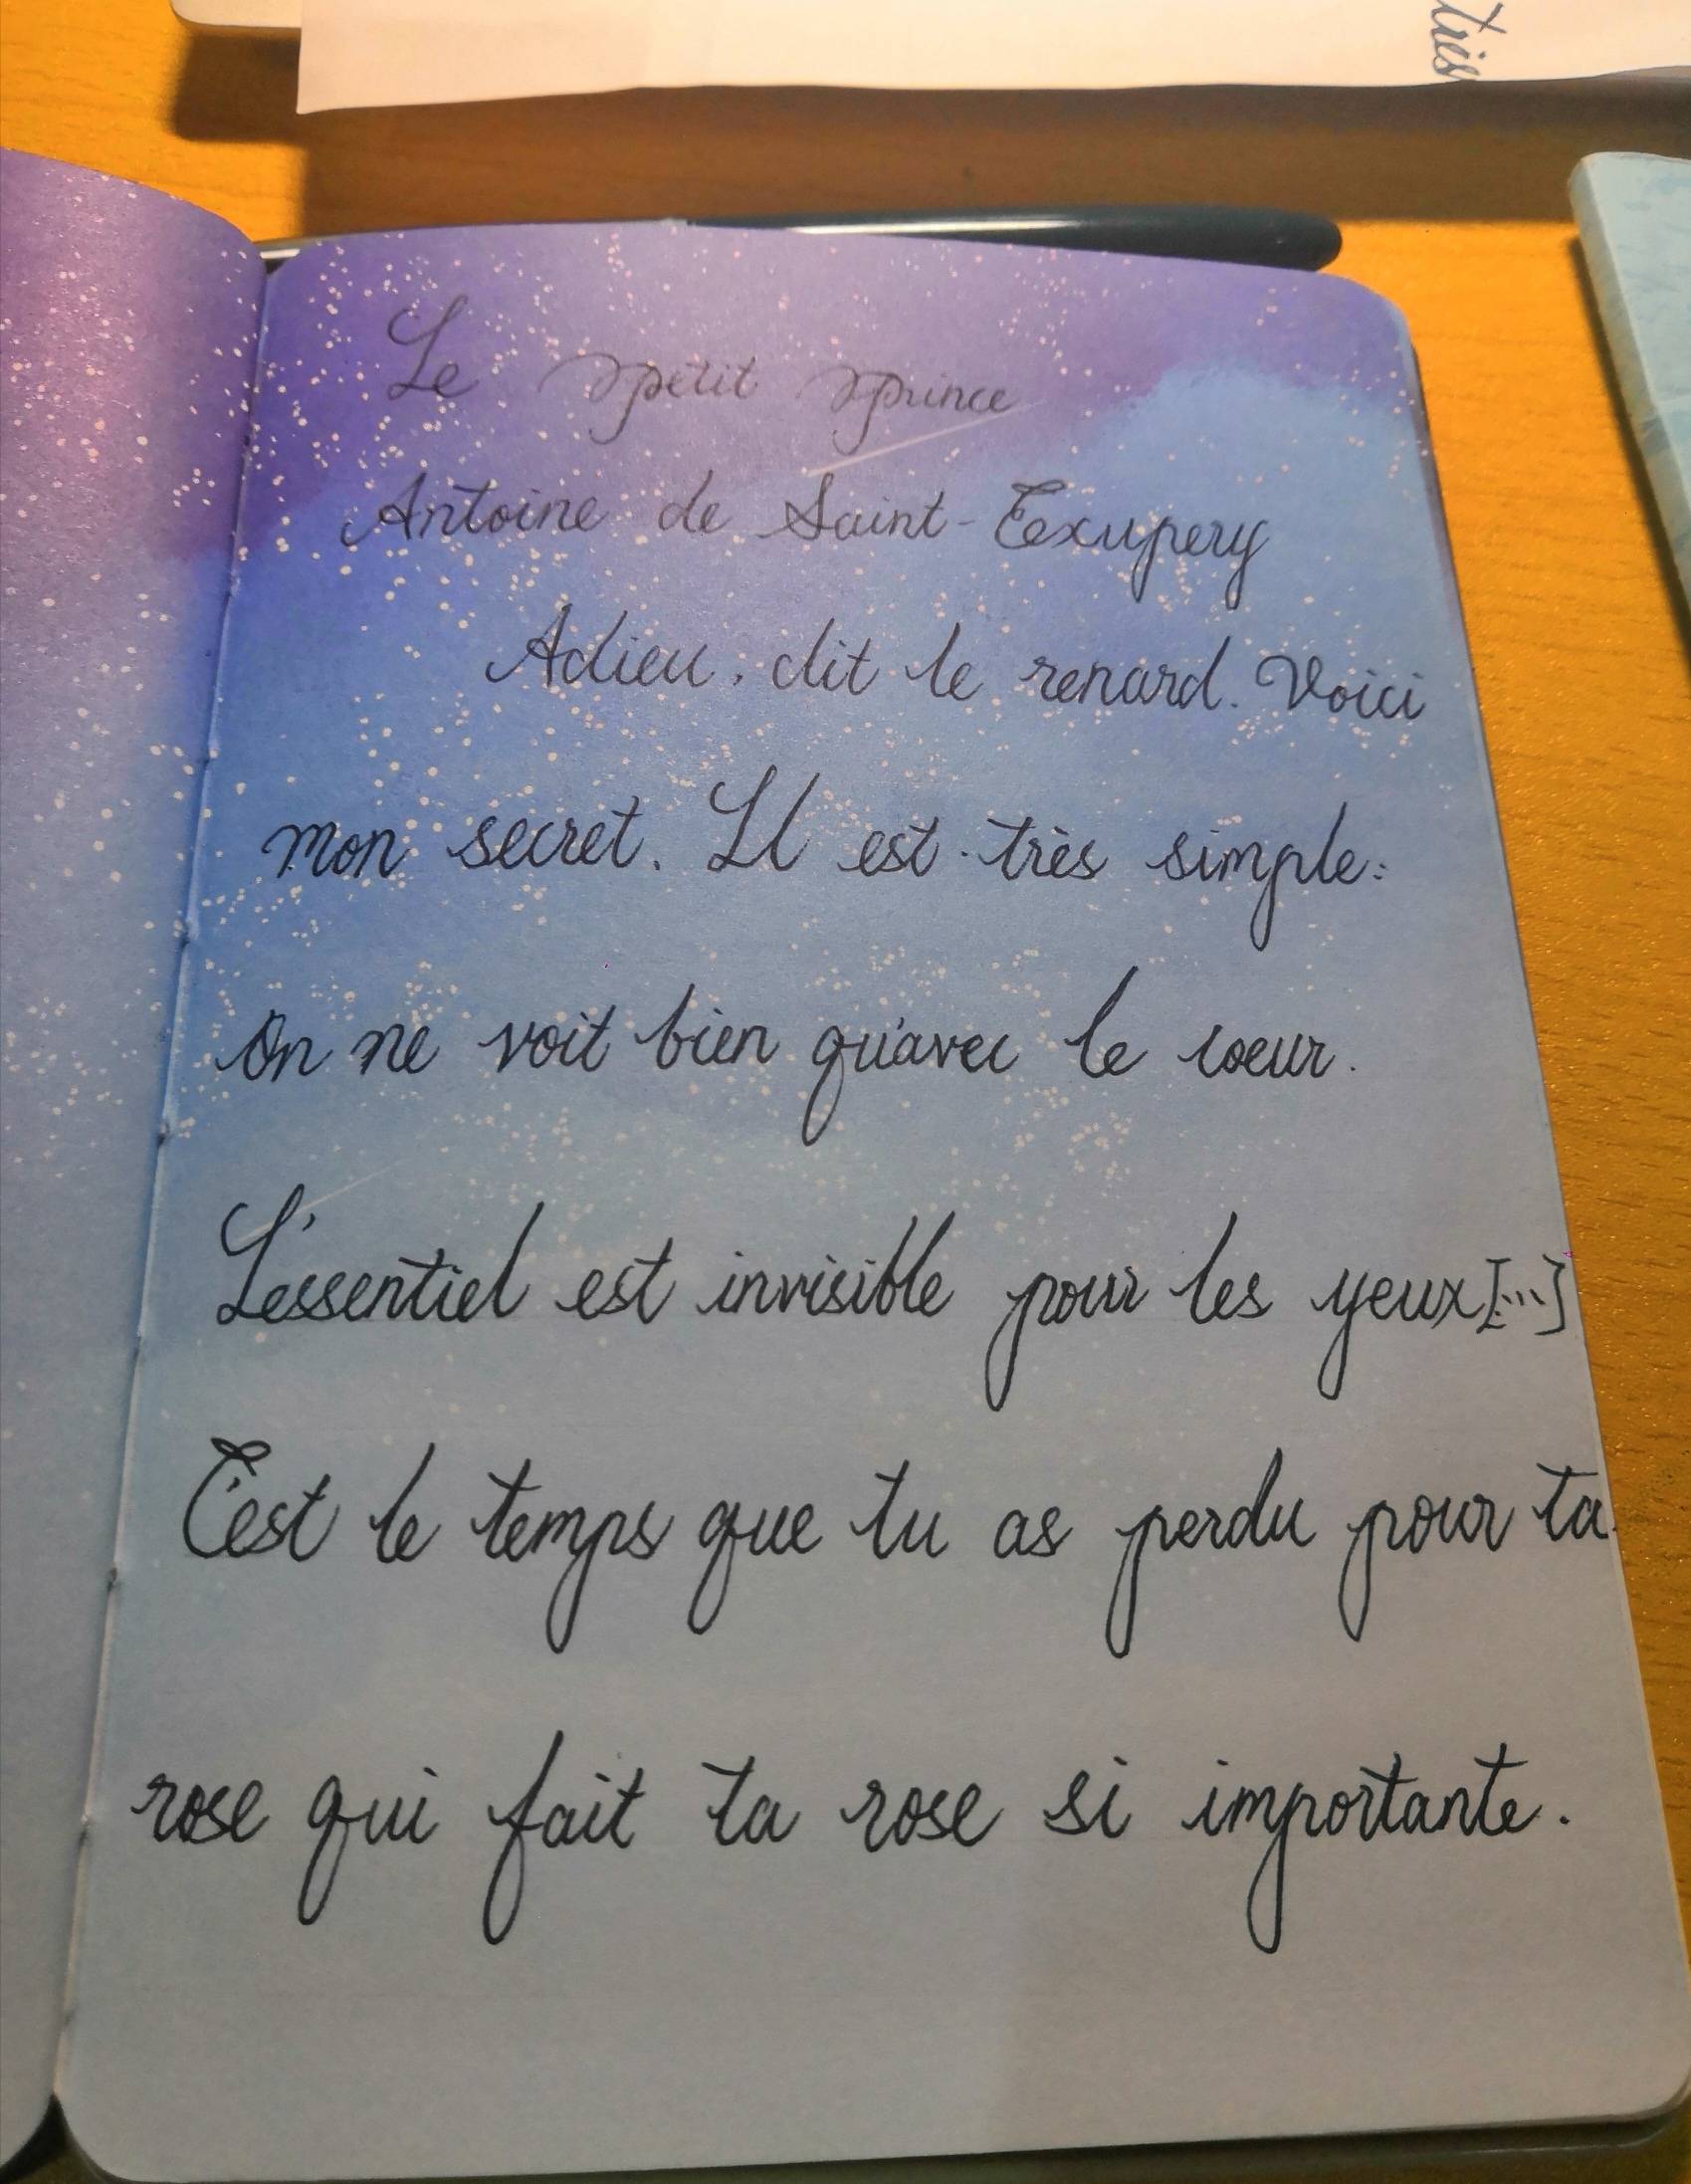 Le petit prince
Antoine de Saint-Exupery
Adieu, dit le renard. Voici
mon secret. Il est très simple:
On ne voit bien qu'avec le coeur.
L'essentiel est invisible pour les yeux[...]
C'est le temps que tu as perdu pour ta
rose qui fait ta rose si importante.